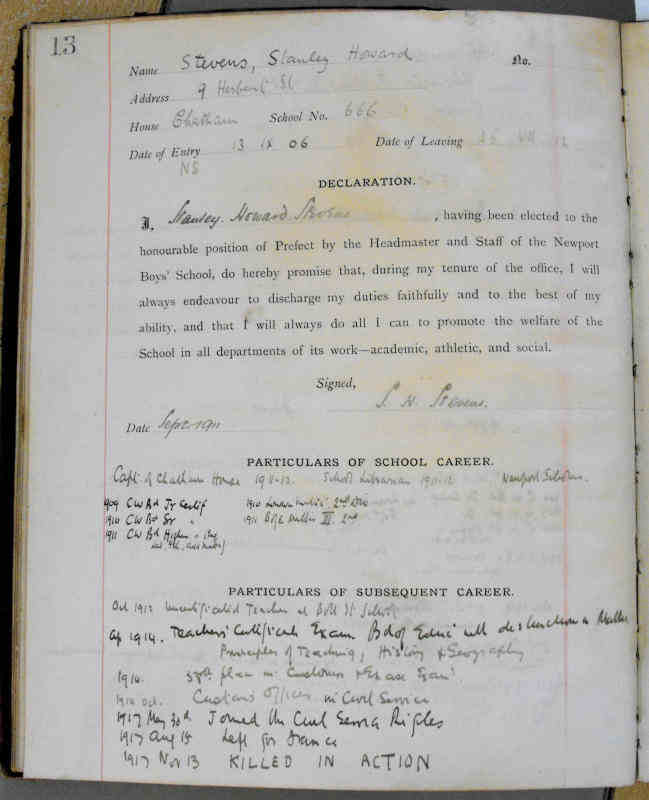 13
Name Stevens, Stanley Howard No.
Address 9 Herbert St
House Chatham School No. 666
Date of Entry 13 IX 06 Date of Leaving 26 VII 12
NS
DECLARATION.
I, Stanley Howard Stevens, having been elected to the
honourable position of Prefect by the Headmaster and Staff of the Newport
Boys' School, do hereby promise that, during my tenure of the office, I will
always endeavour to discharge my duties faithfully and to the best of my
ability, and that I will always do all I can to promote the welfare of the
School in all departments of its work—academic, athletic, and social.
Signed,
S. H. Stevens.
Date Sept 1911
PARTICULARS OF SCHOOL CAREER.
Capt. of Chatham House 1911-12. School Librarian 1911-12 Newport Scholar.
1909 CW Bd Jr Certif 1910 London Matric 2nd Div
1910 CW Bd Sr " 1911 B of E III. 2nd
1911 CW Bd Higher "
PARTICULARS OF SUBSEQUENT CAREER.
Oct 1912 Uncertificated Teacher at Bolt St School
1914. Teachers' Certificate Exam Bd of Educ with distinction in Maths
Principles of Teaching, History & Geography
1914. place in Customs & Excise Exam
1914 Oct. Customs Officer in Civil Service
1917 May 30th Joined the Civil Service Rifles
1917 Aug 15 Left for France
1917 Nov 13 KILLED IN ACTION